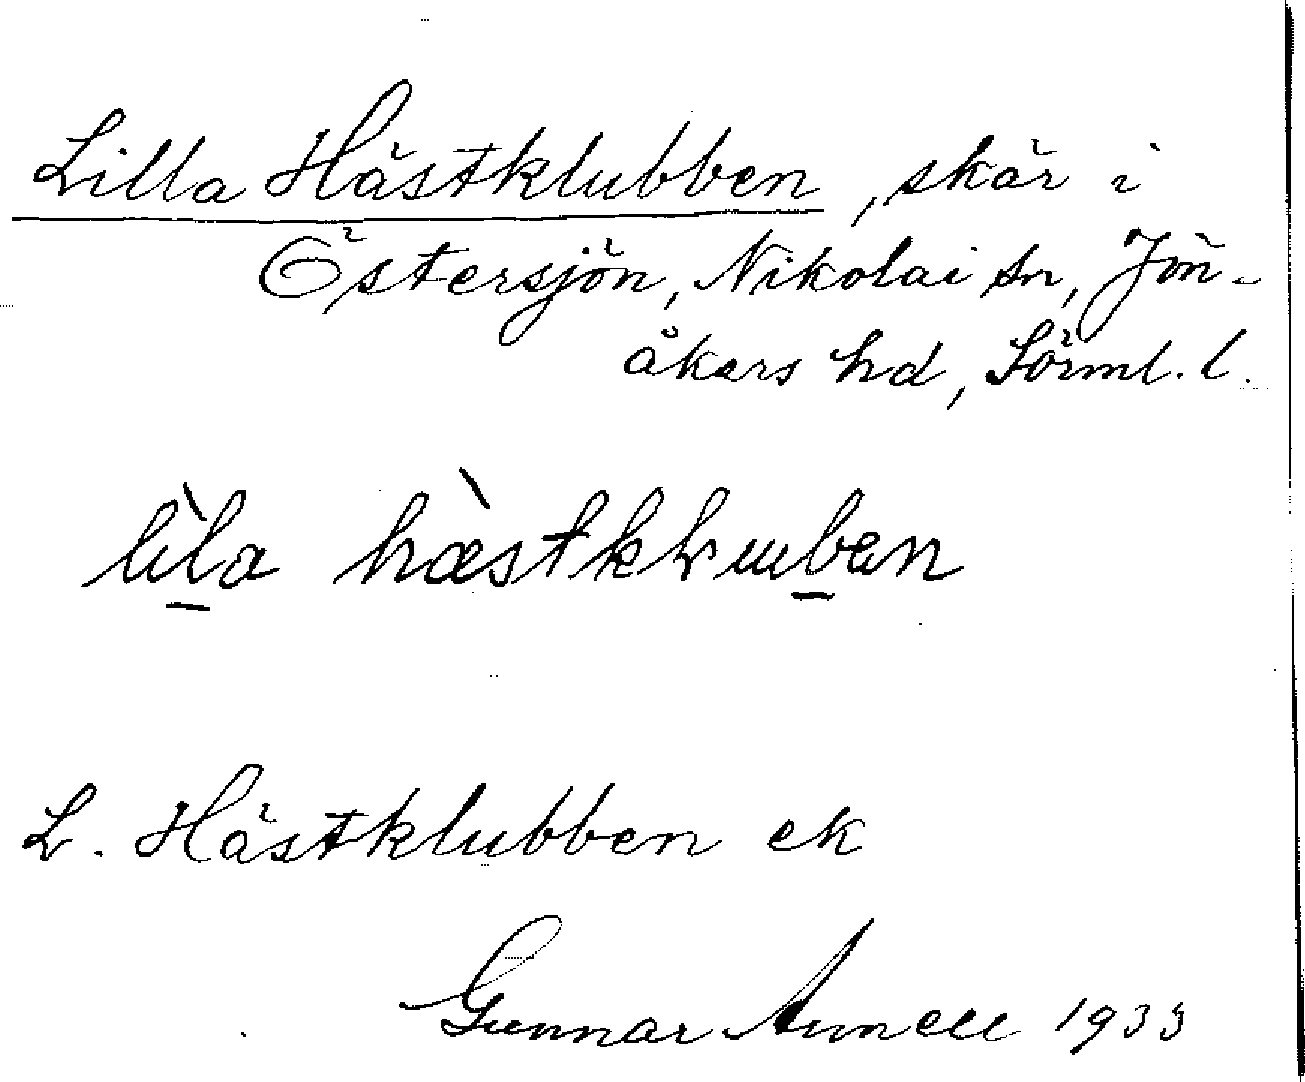 Lilla Hästklubben, skär i
Östersjön, Nikolai sn, Jön-
åkers hd, Sörml. l.
lìla hæ̀stkluben
L. Hästklubben ek
Gunnar 1933